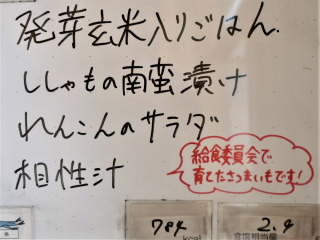 発芽玄米入りごはん.
ししゃもの南蛮漬け
れんこんのサラダ
相性汁
給食委員会で
育てたさつまいもです!
784
kcal
2.4
食塩相当量